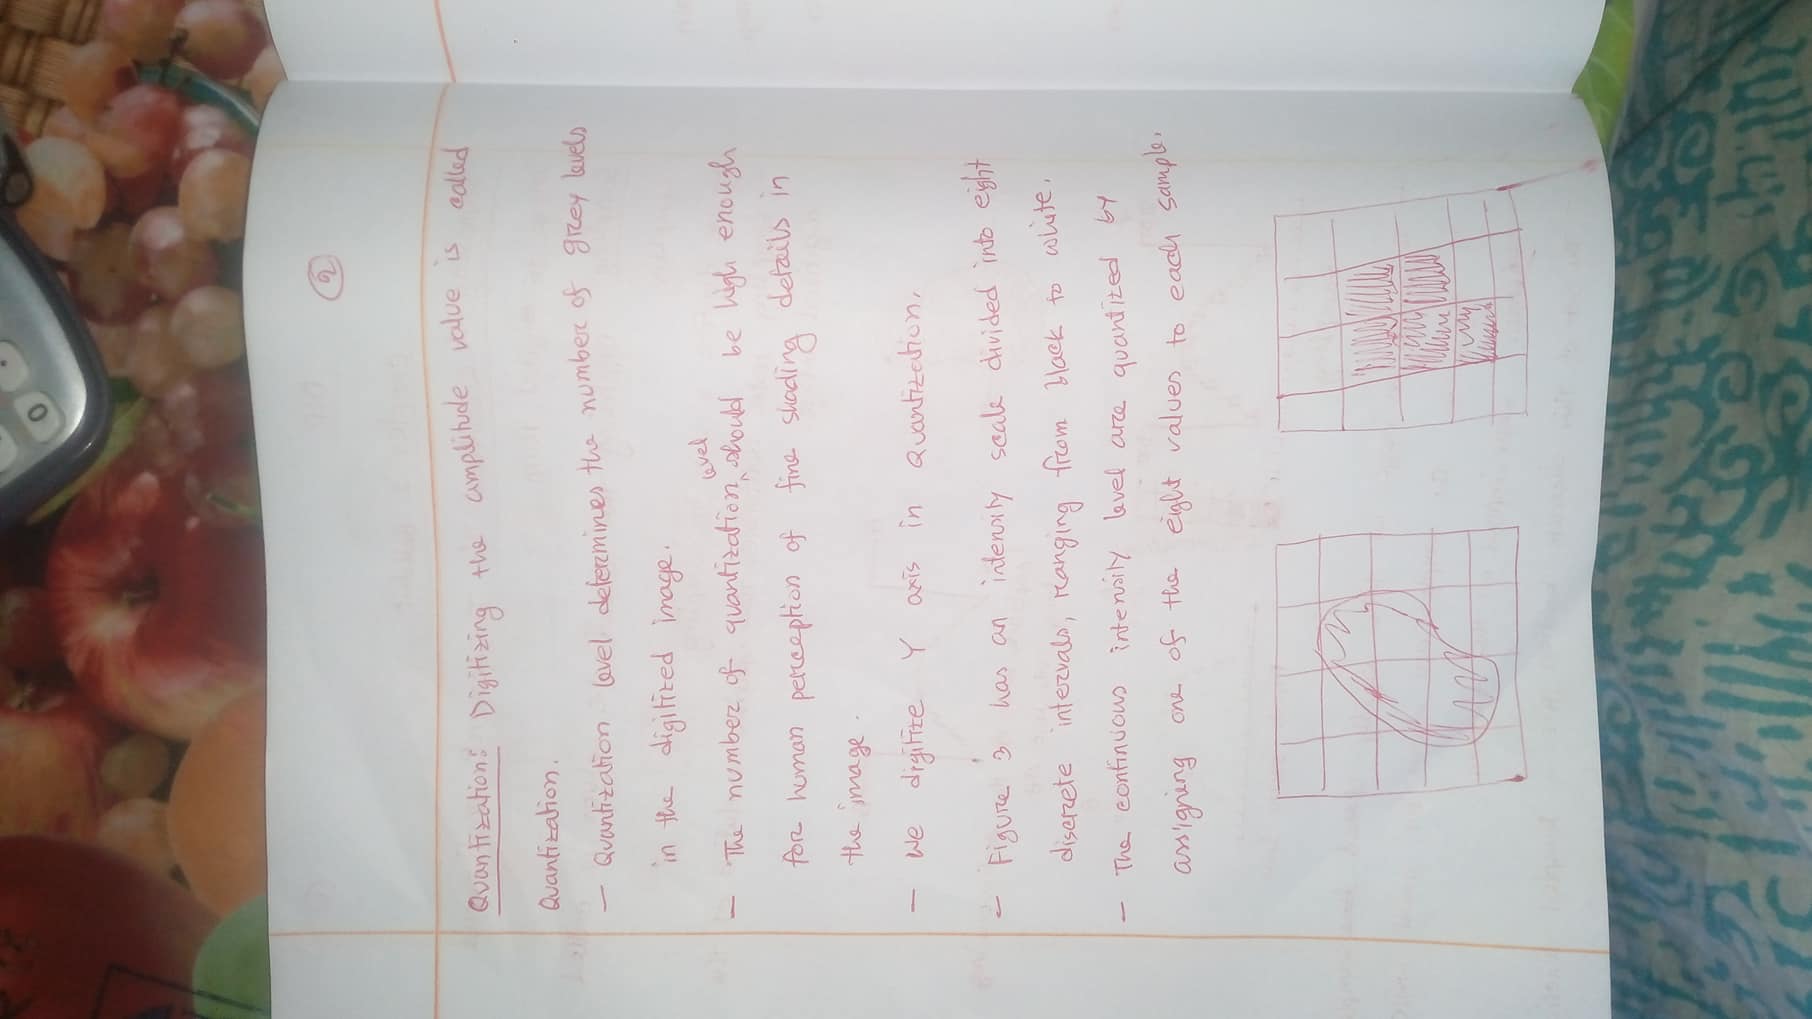 2
Quantization: Digitizing the amplitude value is called
Quantization.
- Quantization level determines the number of grey levels
in the digitized image.
- The number of quantization level should be high enough
for human perception of fine shading details in
the image.
- We digitize Y axis in Quantization.
- Figure 3 has an intensity scale divided into eight
discrete intervals, ranging from black to white.
- The continuous intensity level are quantized by
assigning one of the eight values to each sample.